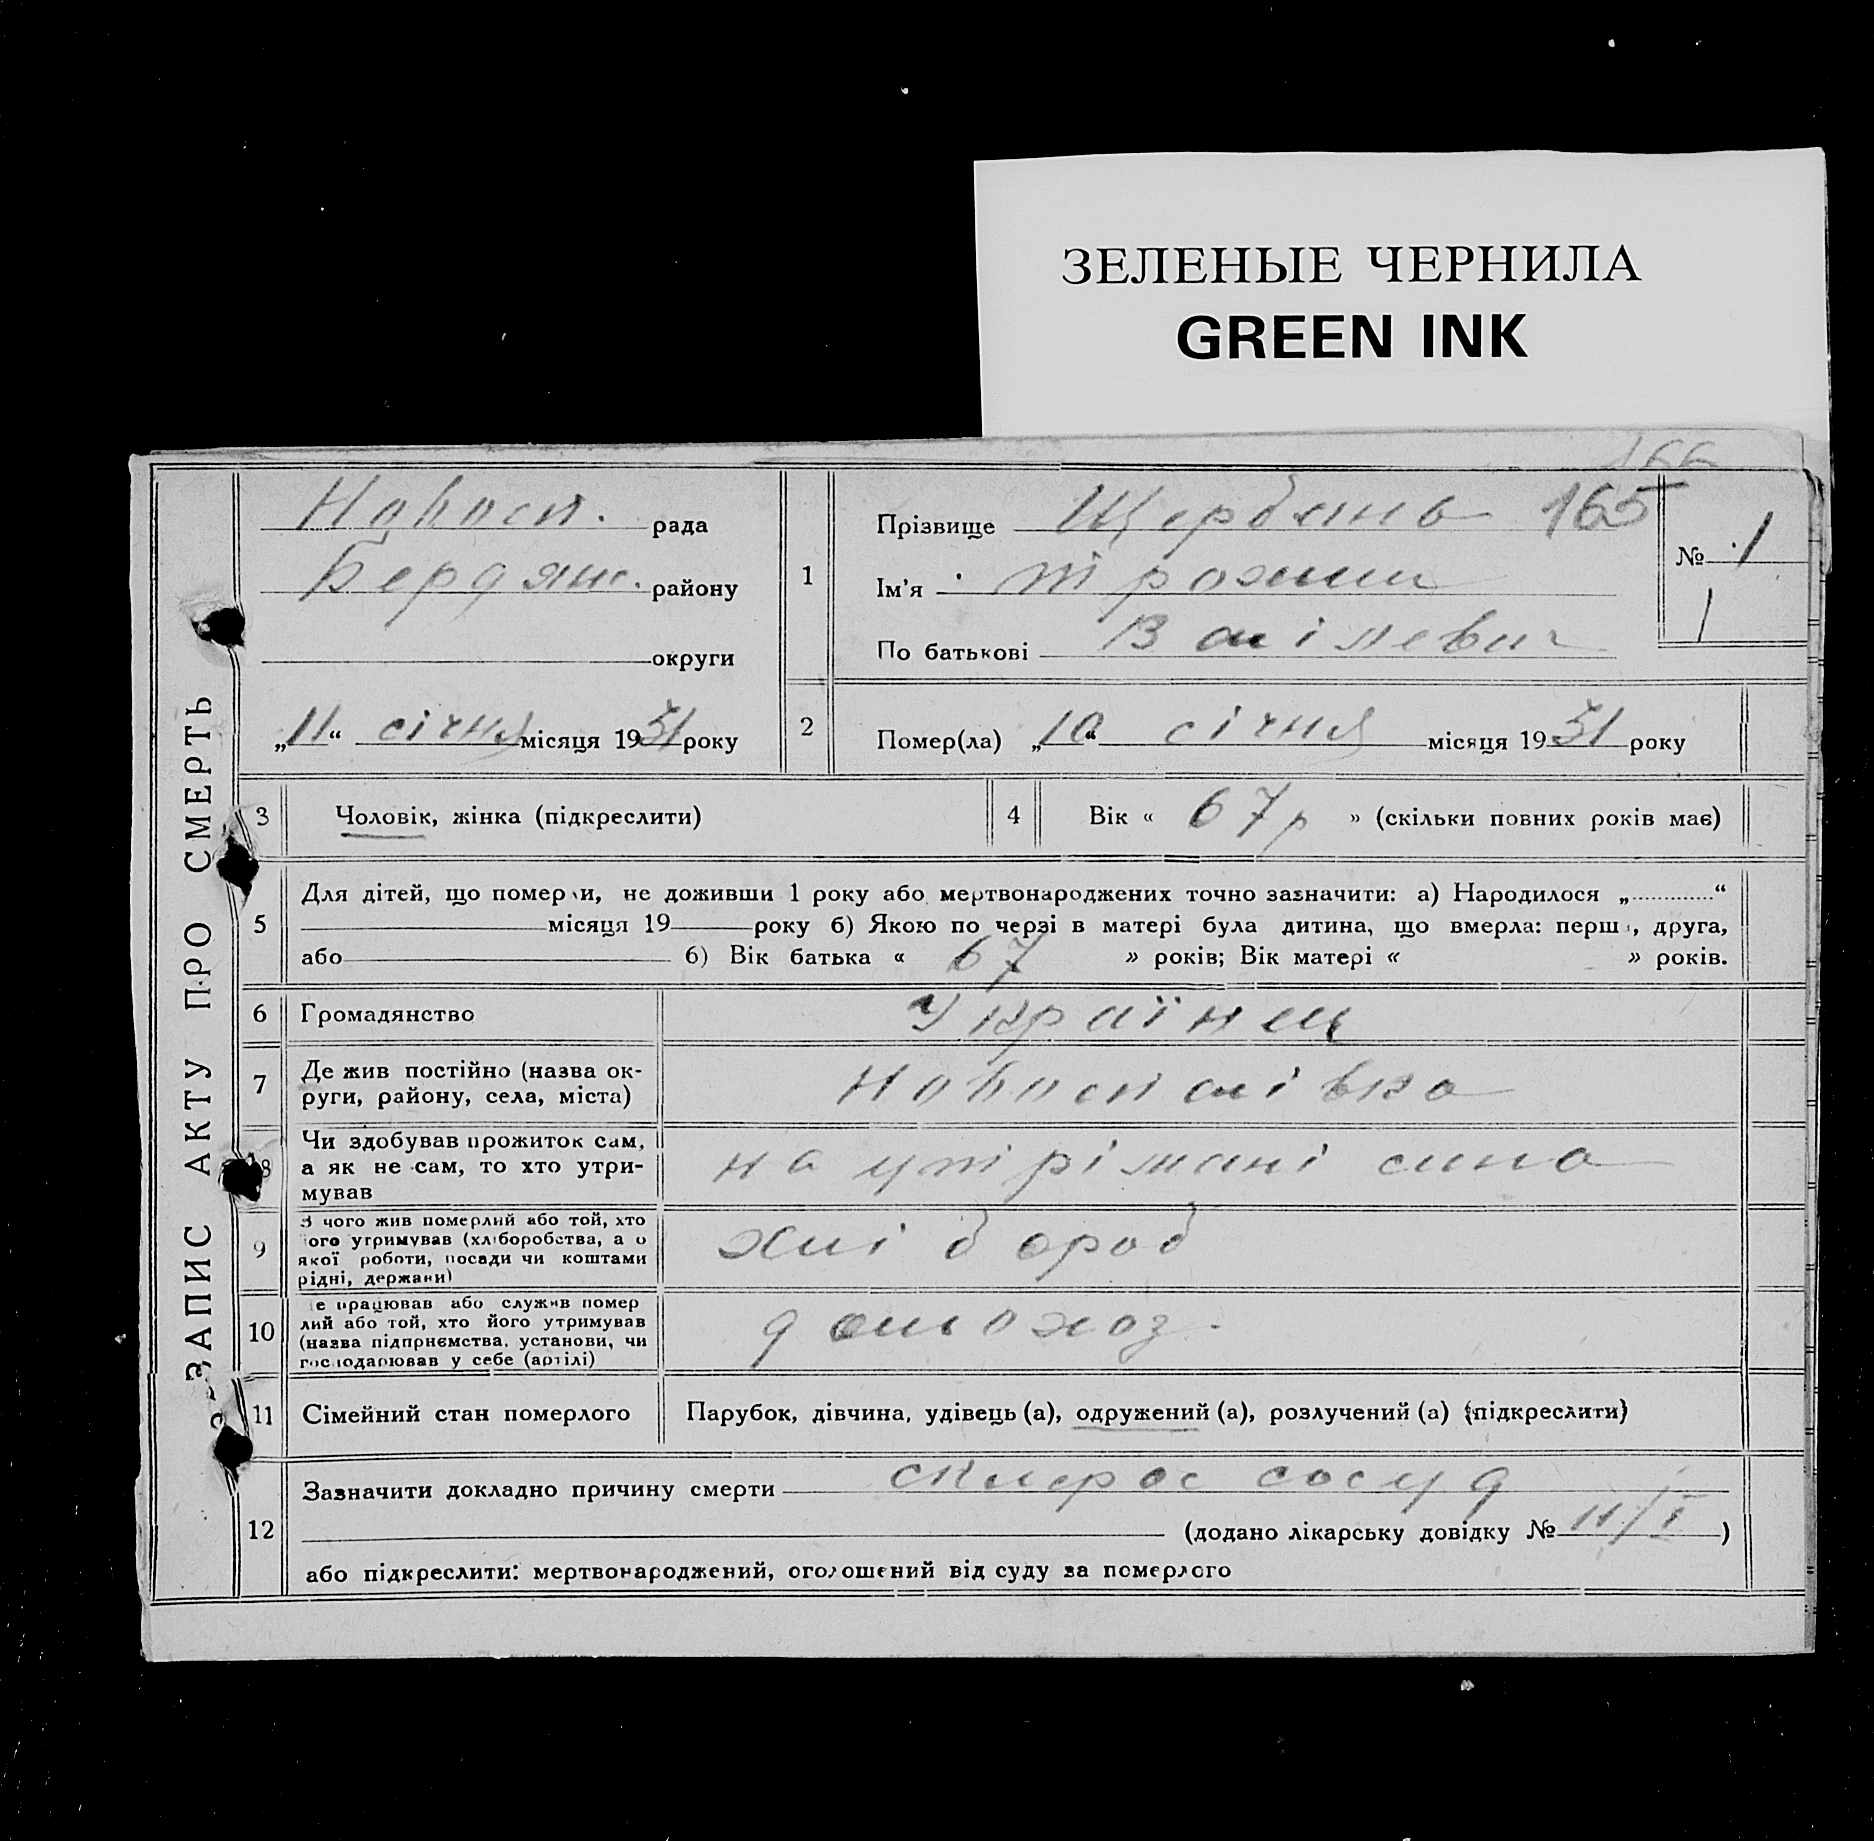 ЗЕЛЕНЫЕ ЧЕРНИЛА
GREEN INK
166
ЗАПИС АКТУ ПРО СМЕРТЬ
Новосп. рада
Бердянс. району
округи
„11“ січня місяця 1931 року
1
Прізвище Щербань 165
Ім'я Трохим
По батькові Васілевич
№ 1
1
2 Помер(ла) „10“ січня місяця 1931 року
3 Чоловік, жінка (підкреслити)
4 Вік « 67 р » (скільки повних років має)
5 Для дітей, що померли, не доживши 1 року або мертвонароджених точно зазначити: а) Народилося „............“
місяця 19 року б) Якою по черзі в матері була дитина, що вмерла: перша, друга,
або б) Вік батька « 67 » років; Вік матері « » років.
6 Громадянство Українець
7 Де жив постійно (назва ок-
руги, району, села, міста) Новоспасівка
8 Чи здобував прожиток сам,
а як не сам, то хто утри-
мував на утрімані сина
9 З чого жив померлий або той, хто
його утримував (хліборобства, а о
якої роботи, посади чи коштами
рідні, держави) хлібороб
10 Де працював або служив помер
лий або той, хто його утримував
(назва підприємства, установи, чи
господарював у себе (артілі) домохоз.
11 Сімейний стан померлого Парубок, дівчина, удівець (а), одружений (а), розлучений (а) (підкреслити)
12 Зазначити докладно причину смерти склерос сосуд
(додано лікарську довідку № 11/I)
або підкреслити: мертвонароджений, оголошений від суду за померлого